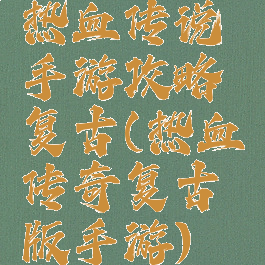 热血传说
手游攻略
复古(热血
传奇复古
版手游)